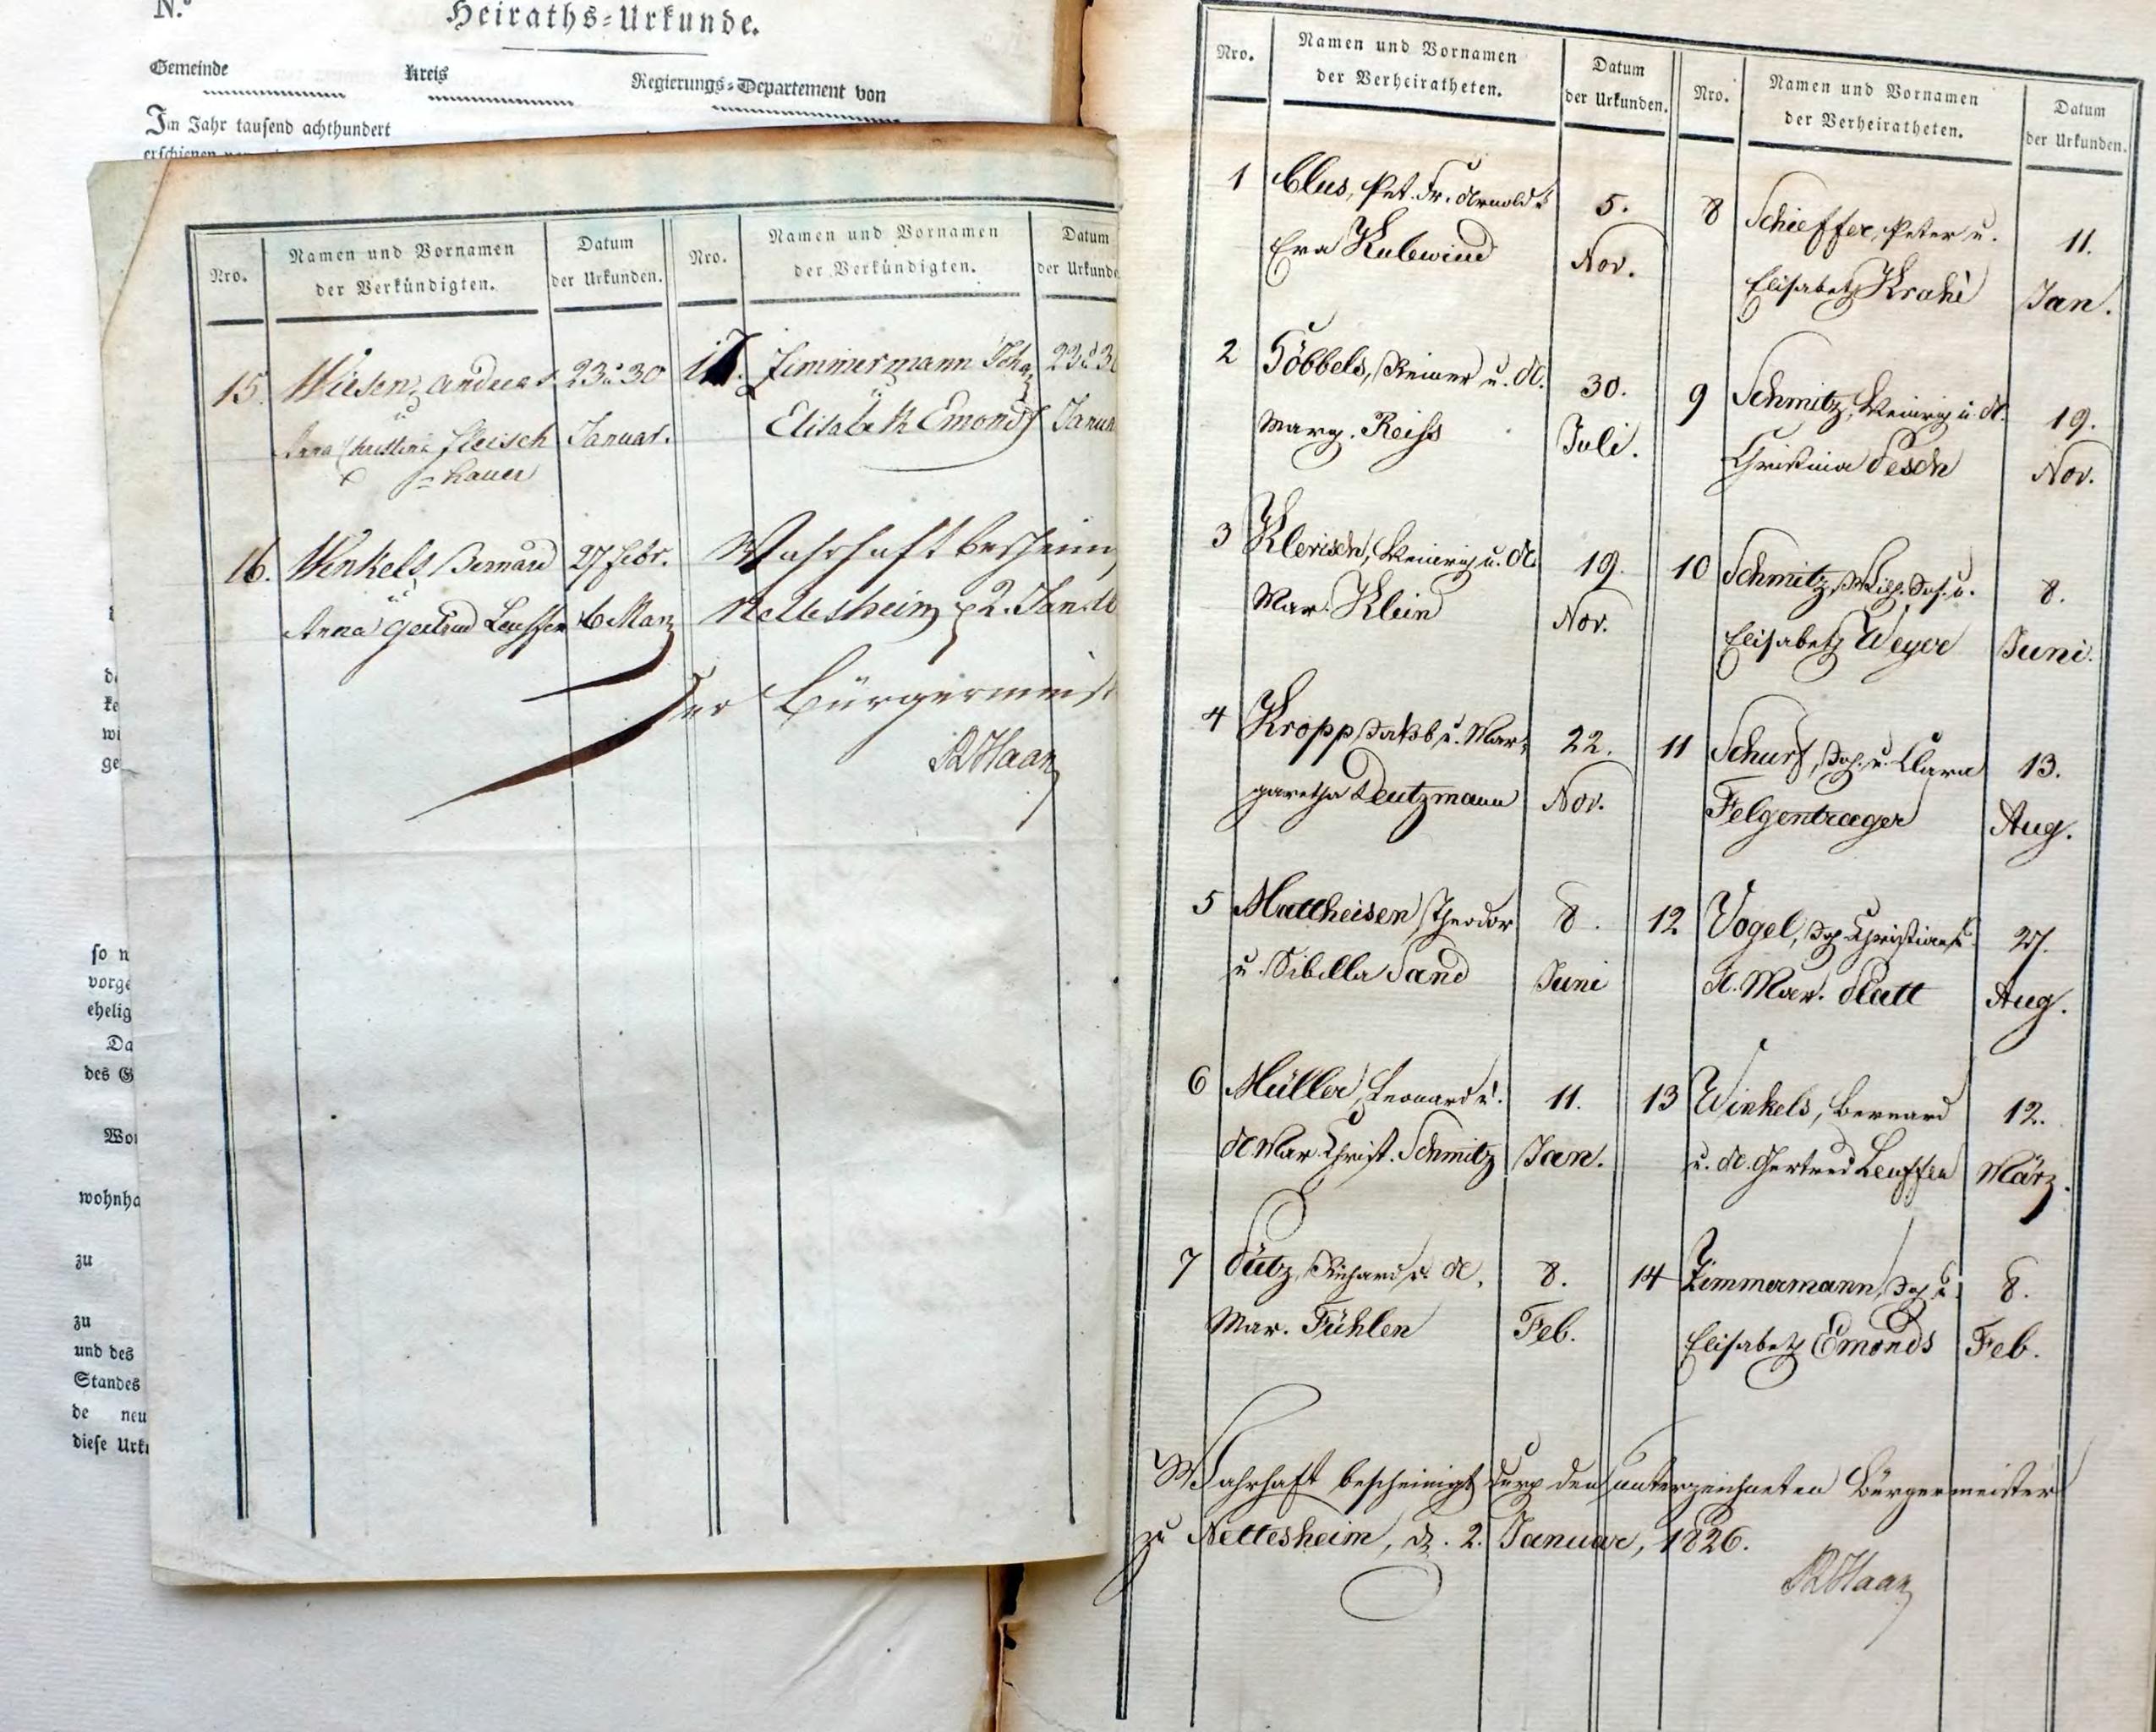 N.º
Heiraths-Urkunde.
Gemeinde Kreis Regierungs-Departement von
Im Jahr tausend achthundert
so n
vorge
ehelig
Da
des G
wohnha
zu
zu
und des
Standes
de neu
diese Urku
Nro. Namen und Vornamen der Verkündigten. Datum der Urkunden. Nro. Namen und Vornamen der Verkündigten. Datum der Urkunde
15. Wiesen, Andreas 23 u 30
u
Anna Christina Fleisch Januar.
=hauer
16. Winkels Bernard 27 Febr.
u
Anna Gertrud Leuffen 6 Marz
17. Zimmermann Joha 23 u 3
u
Elisabeth Emonds Janua
Wahrhaft beschein
Nettesheim 2. Jan.
Der Bürgermeist
Haan
Nro. Namen und Vornamen der Verheiratheten. Datum der Urkunden. Nro. Namen und Vornamen der Verheiratheten. Datum der Urkunden.
1 Clus, Pet. Fr. Arnold u 5.
Eva Kulewind Nov.
2 Göbbels, Reiner u. A. 30.
Marg. Reiss Juli.
3 Klerisch, Heinrich u. A. 19.
Mar. Klein Nov.
4 Kropp Jakob u. Mar- 22.
garetha Deutzmann Nov.
5 Mattheisen Theodor 8.
u. Sibilla Sand Juni
6 Müller, Leonard u. 11.
A Mar. Christ. Schmitz Jan.
7 Sütz, Richard u. A. 8.
Mar. Fühlen Feb.
8 Schieffer, Peter u. 11.
Elisabeth Krahé Jan.
9 Schmitz, Heinrich u. A. 19.
Christina Pesch Nov.
10 Schmitz, Wilh. Jos. u. 8.
Elisabeth Weyer Juni.
11 Schurf, Jos. u. Clara 13.
Felgentraeger Aug.
12 Vogel, Jos Christian u. 27.
A. Mar. Platt Aug.
13 Winkels, Bernard 12.
u. A. Gertrud Leuffen März.
14 Zimmermann, Joh u. 8.
Elisabeth Emonds Feb.
Wahrhaft bescheinigt durch den unterzeichneten Bürgermeister
zu Nettesheim, d. 2. Januar, 1826.
Haan